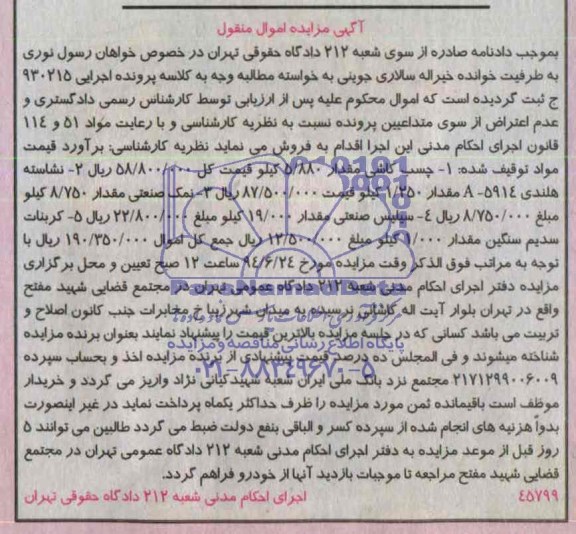 آگهی مزایده اموال منقول
بموجب دادنامه صادره از سوی شعبه ۲۱۲ دادگاه حقوقی تهران در خصوص خواهان رسول نوری
به طرفیت خوانده خیراله سالاری جوینی به خواسته مطالبه وجه به کلاسه پرونده اجرایی ۹۳۰۲۱۵
ج ثبت گردیده است که اموال محکوم علیه پس از ارزیابی توسط کارشناس رسمی دادگستری و
عدم اعتراض از سوی متداعیین پرونده نسبت به نظریه کارشناسی و با رعایت مواد ۵۱ و ۱۱۴
قانون اجرای احکام مدنی این اجرا اقدام به فروش می نماید نظریه کارشناسی: برآورد قیمت
مواد توقیف شده: ۱- چسب کاشی مقدار ۵/۸۸۰ کیلو قیمت کل ۵۸/۸۰۰/۰۰۰ ریال ۲- نشاسته
هلندی ۵۹۱۴-A مقدار ۱/۲۵۰ کیلو قیمت ۸۷/۵۰۰/۰۰۰ ریال ۳- نمک صنعتی مقدار ۸/۷۵۰ کیلو
مبلغ ۸/۷۵۰/۰۰۰ ریال ٤- سیلیس صنعتی مقدار ۱۹/۰۰۰ کیلو مبلغ ۲۲/۸۰۰/۰۰۰ ریال ۵- کربنات
سدیم سنگین مقدار ۱/۰۰۰ کیلو مبلغ ۱۲/۵۰۰/۰۰۰ ریال جمع کل اموال ۱۹۰/۳۵۰/۰۰۰ ریال با
توجه به مراتب فوق الذکر وقت مزایده مورخ ۹٤/۶/۲٤ ساعت ۱۲ صبح تعیین و محل برگزاری
مزایده دفتر اجرای احکام مدنی شعبه ۲۱۲ دادگاه عمومی تهران در مجتمع قضایی شهید مفتح
واقع در تهران بلوار آیت اله کاشانی نرسیده به میدان شهرزیبا خ مخابرات جنب کانون اصلاح و
تربیت می باشد کسانی که در جلسه مزایده بالاترین قیمت را پیشنهاد نمایند بعنوان برنده مزایده
شناخته میشوند و فی المجلس ده درصد قیمت پیشنهادی از برنده مزایده اخذ و بحساب سپرده
۲۱۷۱۲۹۹۰۰۶۰۰۹ مجتمع نزد بانک ملی ایران شعبه شهید کیانی نژاد واریز می گردد و خریدار
موظف است باقیمانده ثمن مورد مزایده را ظرف حداکثر یکماه پرداخت نماید در غیر اینصورت
بدواً هزنیه های انجام شده از سپرده کسر و الباقی بنفع دولت ضبط می گردد طالبین می توانند ۵
روز قبل از موعد مزایده به دفتر اجرای احکام مدنی شعبه ۲۱۲ دادگاه عمومی تهران در مجتمع
قضایی شهید مفتح مراجعه تا موجبات بازدید آنها از خودرو فراهم گردد.
٤۵۷۹۹ اجرای احکام مدنی شعبه ۲۱۲ دادگاه حقوقی تهران
پایگاه اطلاع رسانی مناقصه و مزایده
۰۲۱-۸۸۳۴۹۶۷۰-۵